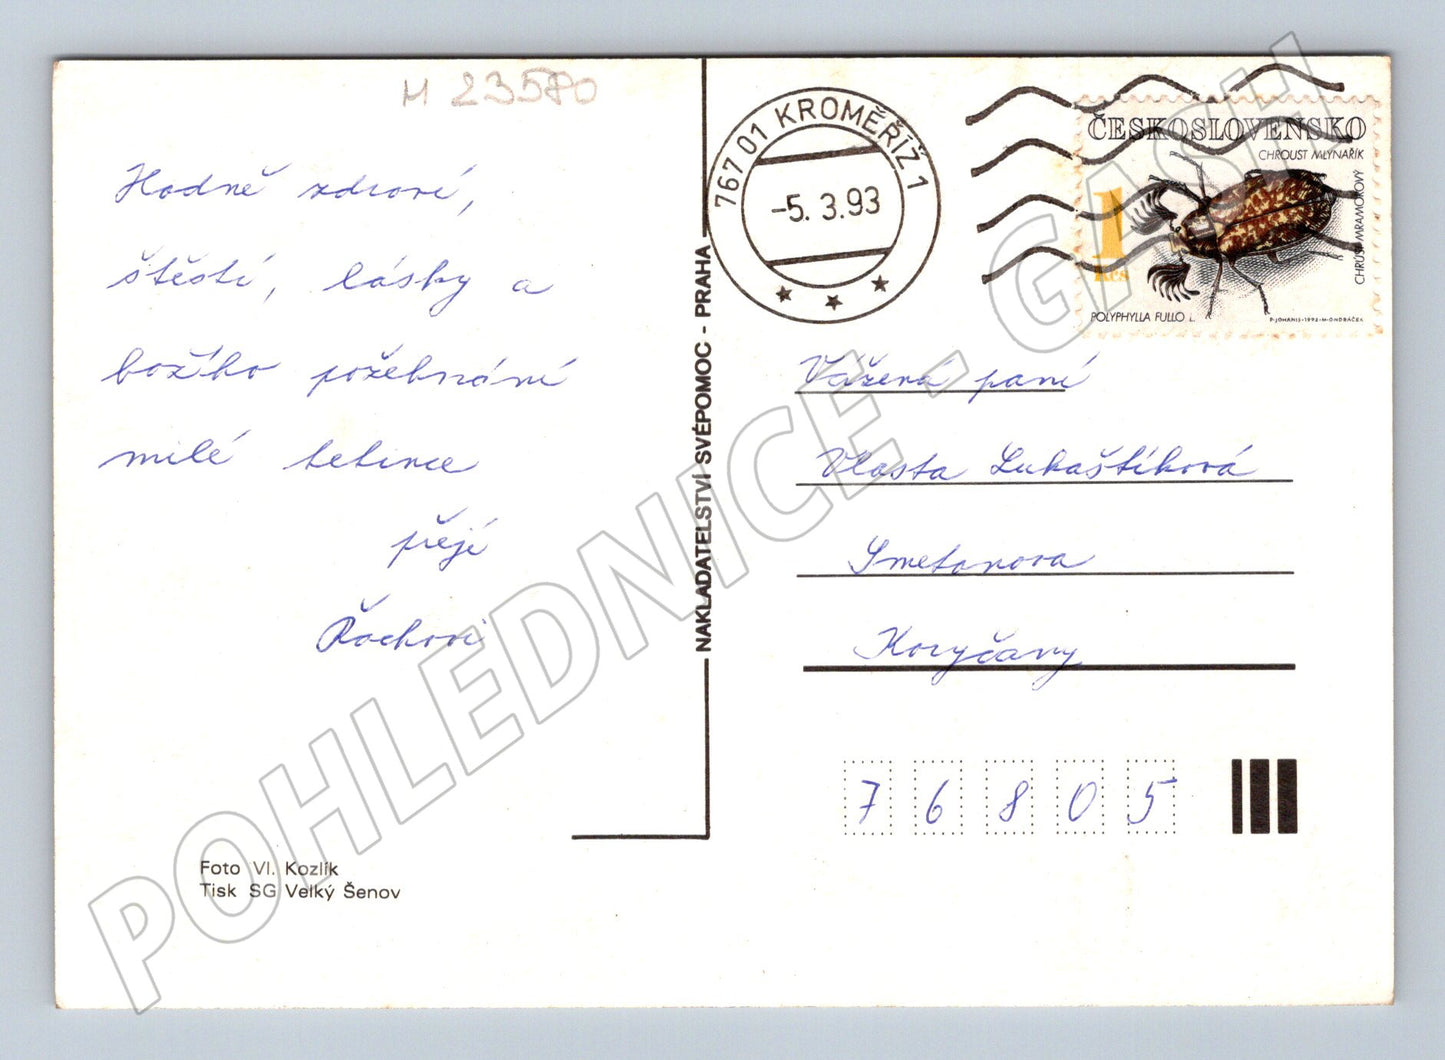 M 23580
Hodně zdraví,
štěstí, lásky a
božího požehnání
milé tetince
přejí
Řochovi
Foto Vl. Kozlík
Tisk SG Velký Šenov
NAKLADATELSTVÍ SVÉPOMOC - PRAHA
767 01 KROMĚŘÍŽ 1
-5. 3.93
ČESKOSLOVENSKO
CHROUST MLYNAŘÍK
CHRÚST MRAMOROVÝ
1 Kčs
POLYPHYLLA FULLO L.
P. JOHANIS-1992-M. ONDRÁČEK
Vážená paní
Vlasta Lukaštíková
Smetanova
Koryčany
76805
POHLEDNICE - GASH